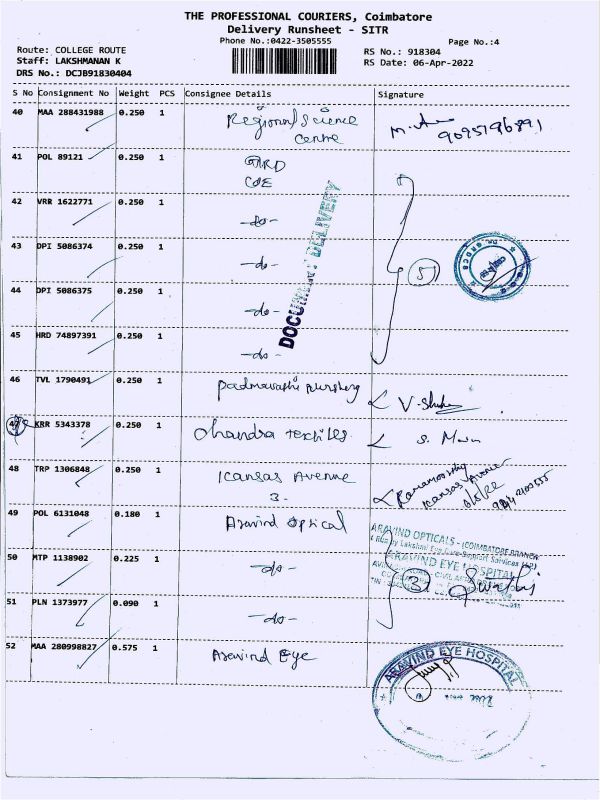 THE PROFESSIONAL COURIERS, Coimbatore
Delivery Runsheet - SITR
Phone No.:0422-3505555
Page No.:4
Route: COLLEGE ROUTE
Staff: LAKSHMANAN K
DRS No.: DCJB91830404
RS No.: 918304
RS Date: 06-Apr-2022
S No Consignment No Weight PCS Consignee Details Signature
40 MAA 288431988 0.250 1 Regional Science
Centre
9095196891
41 POL 89121 0.250 1 GRD
COE
42 VRR 1622771 0.250 1 -do-
43 DPI 5086374 0.250 1 -do-
44 DPI 5086375 0.250 1 -do-
45 HRD 74897391 0.250 1 -do-
DELIVERY
5
46 TVL 1790491 0.250 1
47 KRR 5343378 0.250 1 Chandra textiles
48 TRP 1306848 0.250 1 Kansas Avenue
3-
Kansas Avenue
49 POL 6131048 0.180 1 Aravind Optical
ARAVIND OPTICALS - (COIMBATORE BRANCH
ARAVIND EYE HOSPITAL
50 MTP 1138902 0.225 1 -do-
3
51 PLN 1373977 0.090 1 -do-
52 MAA 280998827 0.575 1 Aravind Eye
ARAVIND EYE HOSPITAL